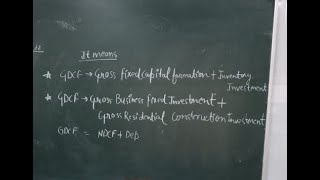 It means
* GDCF → Gross fixed capital formation + Inventory
Investment
* GDCF → Gross Business fixed Investment +
Gross Residential Construction investment
GDCF = NDCF + Dep